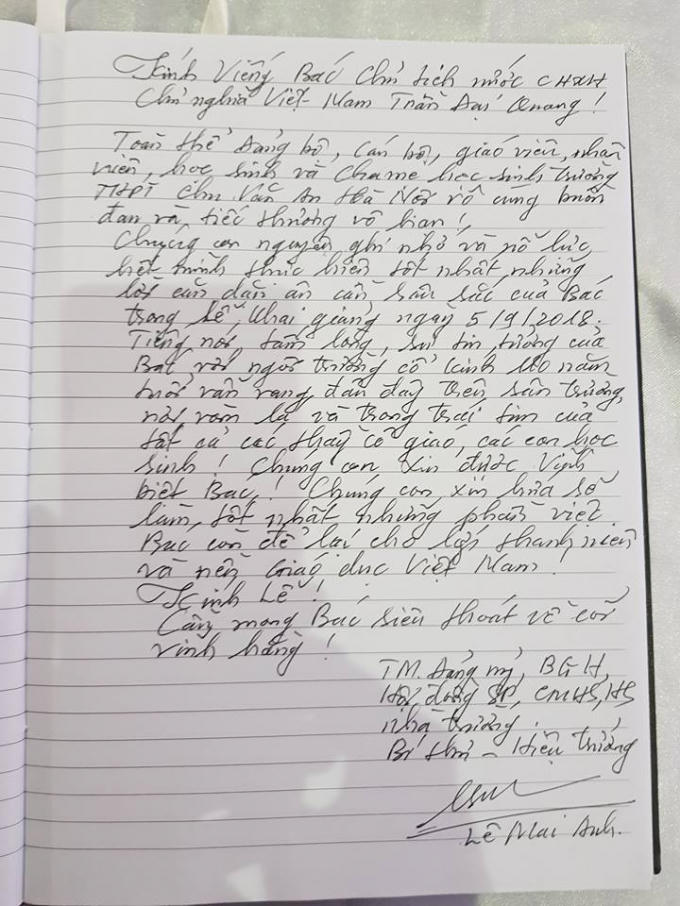 Kính Viếng Bác Chủ tịch nước CHXH
Chủ nghĩa Việt Nam Trần Đại Quang!
Toàn thể Đảng bộ, cán bộ, giáo viên, nhân
viên, học sinh và Cha mẹ học sinh trường
THPT Chu Văn An Hà Nội vô cùng buồn
đau và tiếc thương vô hạn!
Chúng con nguyện ghi nhớ và nỗ lực
hết mình thực hiện tốt nhất những
lời căn dặn ân cần sâu sắc của Bác
trong Lễ Khai giảng ngày 5/9/2018.
Tiếng nói, tấm lòng, sự tin tưởng của
Bác với ngôi trường cổ kính 110 năm
tuổi vẫn vang đâu đây trên sân trường,
nơi vòm lá và trong trái tim của
tất cả các thầy cô giáo, các con học
sinh! Chúng con xin được Vĩnh
biệt Bác! Chúng con xin hứa sẽ
làm tốt nhất những phần việc
Bác còn để lại cho lớp thanh niên
và nền Giáo dục Việt Nam!
Kính Lễ!
Cầu mong Bác siêu thoát về cõi
vĩnh hằng!
TM. Đảng ủy, BGH,
Hội đồng SP, CMHS, HS
nhà trường.
Bí thư - Hiệu trưởng
Lê Mai Anh.